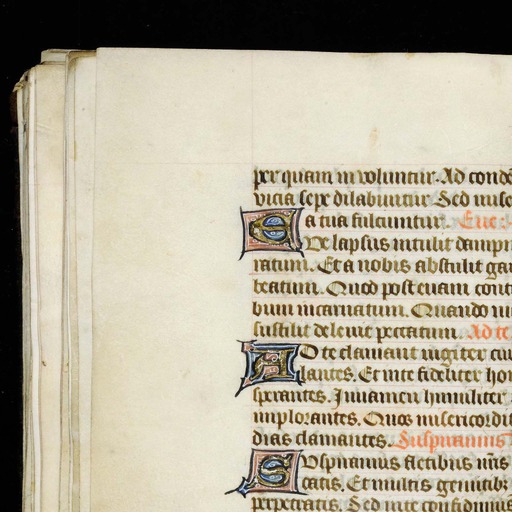 per quam involuntur. Ad cond
vicia sepe dilabuntur Sed mise
a tua fulciuntur. Eue
EVe lapsus intulit damp
ratum. Et a nobis abstulit gau
beatum. Quod post euam cont
bum incarnatum. Quando
sustulit de leuie peccatum. Ad te
AD te clamant iugiter
lantes. Et in te fideliter
sperantes. Iuuamen humiliter
implorantes. Quos misericordi
dias clamantes. Suspiramus
SVspiramus fletibus nris
catis. Et multis gemitib
perpetratis. Sed in te confidimus